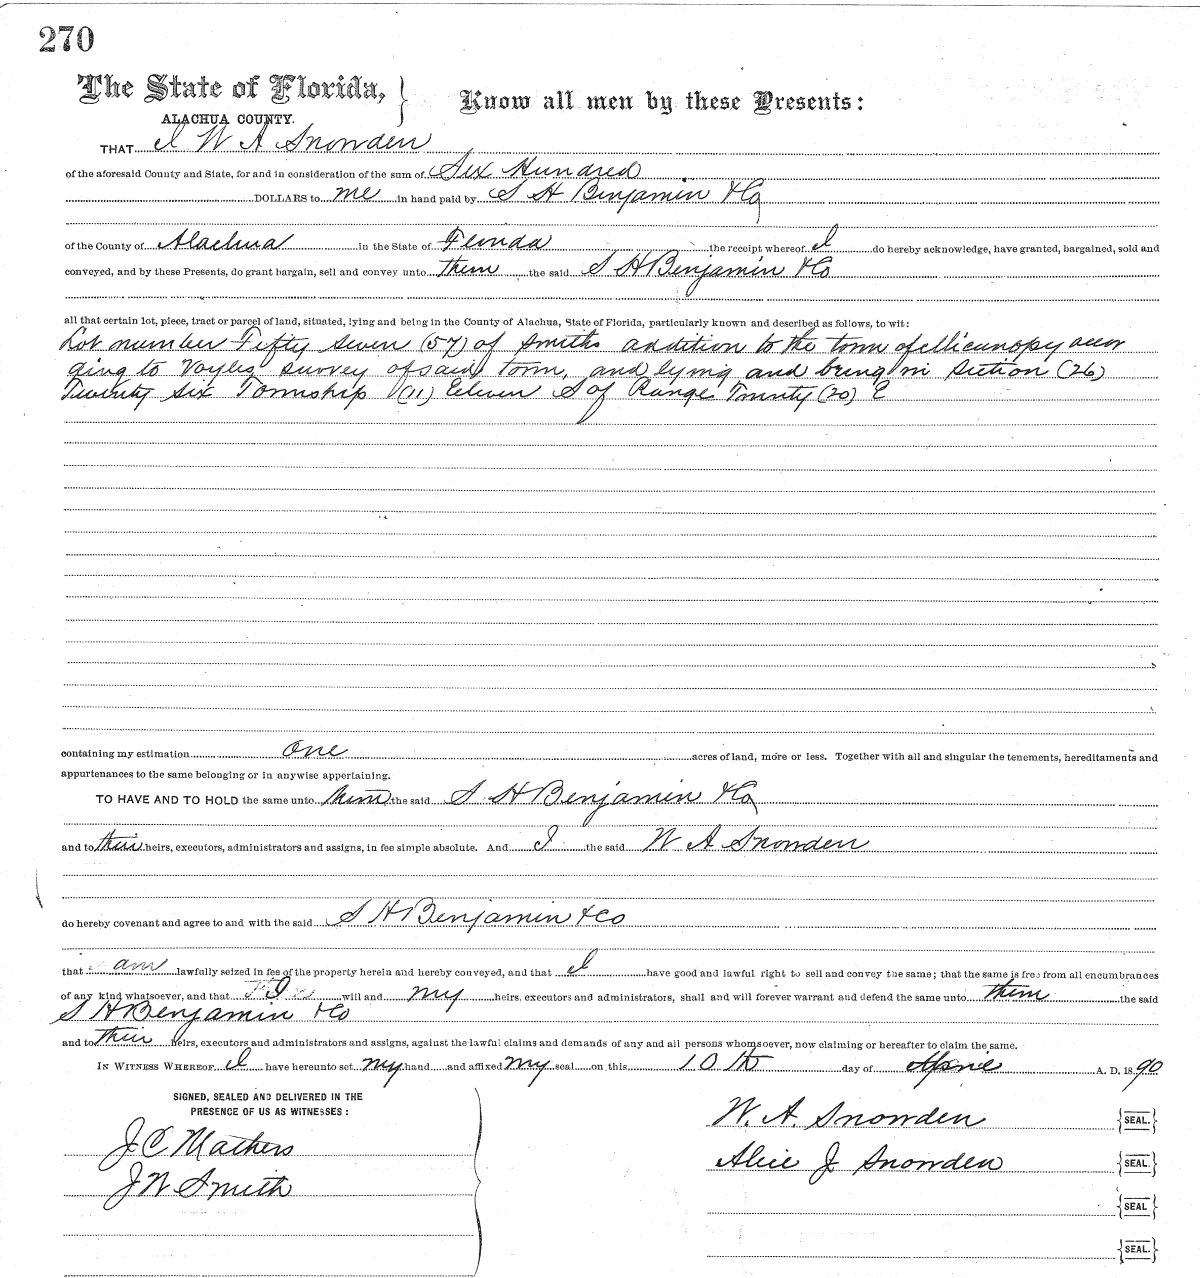 270
The State of Florida, } Know all men by these Presents:
ALACHUA COUNTY.
THAT I W A Snowden
of the aforesaid County and State, for and in consideration of the sum of Six Hundred
DOLLARS to me in hand paid by S H Benjamin & Co
of the County of Alachua in the State of Florida the receipt whereof I do hereby acknowledge, have granted, bargained, sold and
conveyed, and by these Presents, do grant bargain, sell and convey unto them the said S H Benjamin & Co
all that certain lot, piece, tract or parcel of land, situated, lying and being in the County of Alachua, State of Florida, particularly known and described as follows, to wit:
Lot number Fifty Seven (57) of Smiths addition to the town of Micanopy accor
ding to Voyles survey of said Town, and lying and being in Section (26)
Twenty Six Township (11) Eleven S of Range Twenty (20) E
containing my estimation one acres of land, more or less. Together with all and singular the tenements, hereditaments and
appurtenances to the same belonging or in anywise appertaining.
TO HAVE AND TO HOLD the same unto them the said S H Benjamin & Co
and to their heirs, executors, administrators and assigns, in fee simple absolute. And I the said W A Snowden
do hereby covenant and agree to and with the said S H Benjamin & Co
that am lawfully seized in fee of the property herein and hereby conveyed, and that I have good and lawful right to sell and convey the same; that the same is free from all encumbrances
of any kind whatsoever, and that I will and my heirs, executors and administrators, shall and will forever warrant and defend the same unto them the said
S H Benjamin & Co
and to their heirs, executors and administrators and assigns, against the lawful claims and demands of any and all persons whomsoever, now claiming or hereafter to claim the same.
IN WITNESS WHEREOF I have hereunto set my hand and affixed my seal on this 10th day of April A. D. 1890
SIGNED, SEALED AND DELIVERED IN THE
PRESENCE OF US AS WITNESSES:
W. A. Snowden {SEAL.}
J C Mathers
Alice J Snowden {SEAL.}
J W Smith
{SEAL}
{SEAL.}